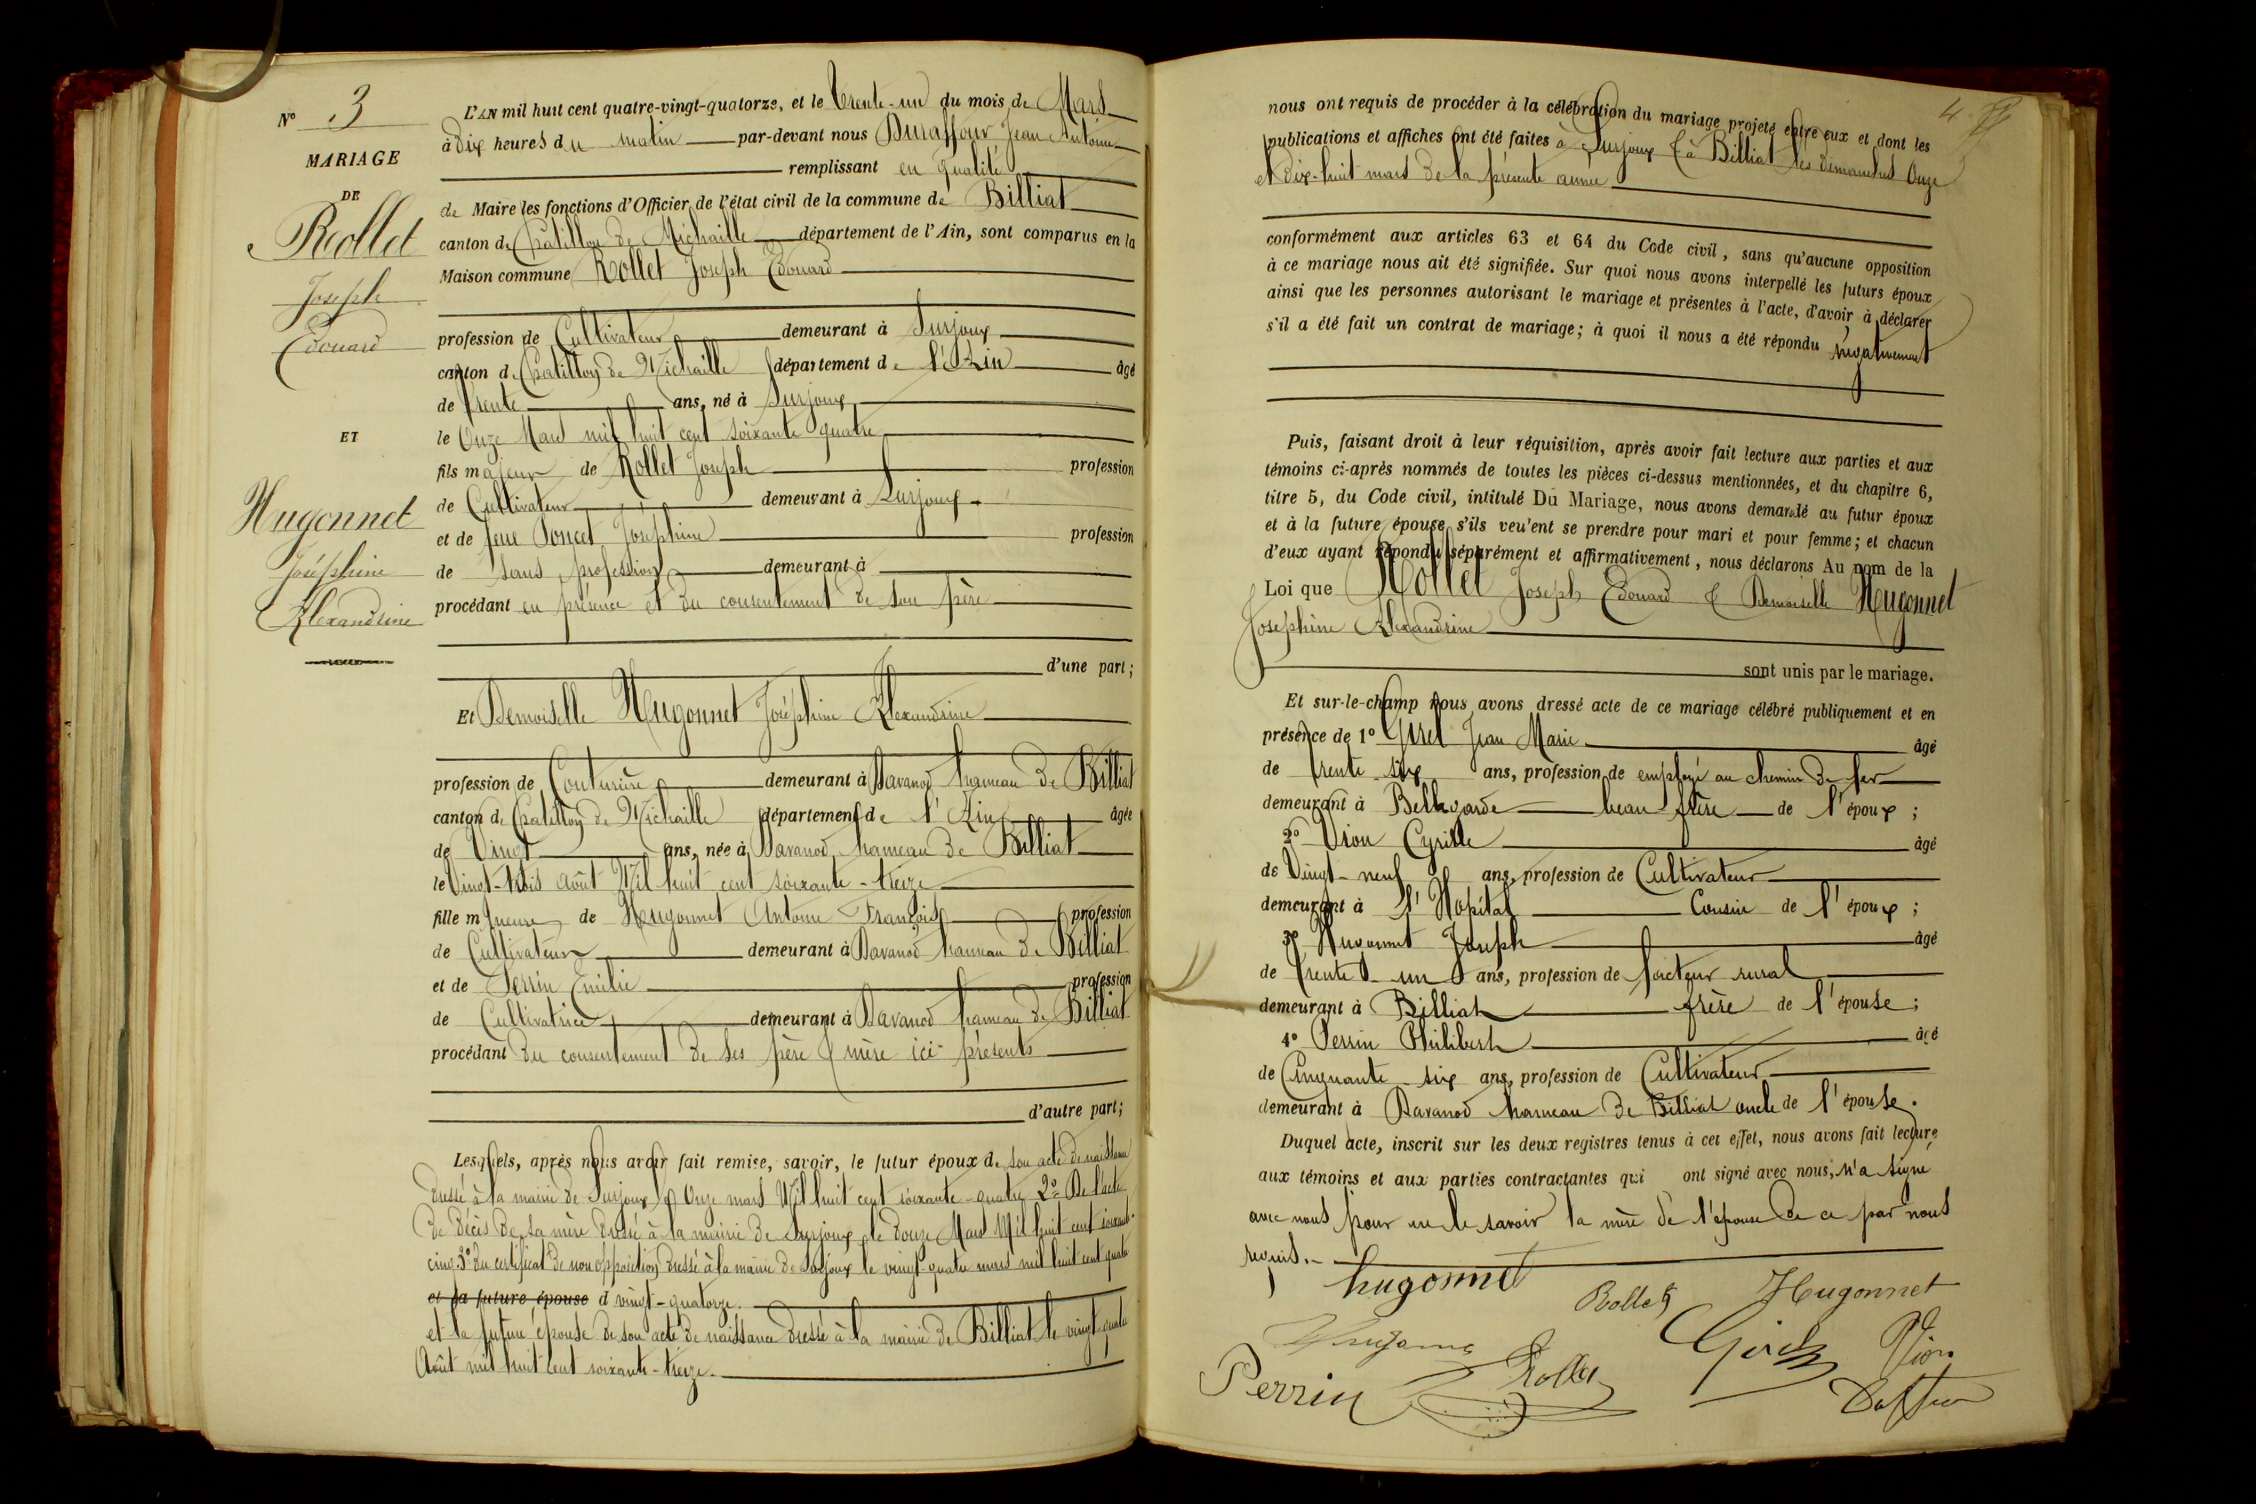 N° 3
MARIAGE
DE
Rollet
Joseph
Edouard
ET
Hugonnet
Joséphine
Alexandrine
L'AN mil huit cent quatre-vingt-quatorze, et le Trente-un du mois de Mars
à Dix heures du matin par-devant nous Duraffour Jean Antoine
remplissant en qualité
de Maire les fonctions d'Officier de l'état civil de la commune de Billiat
canton de Chatillon de Michaille département de l'Ain, sont comparus en la
Maison commune Rollet Joseph Edouard
profession de Cultivateur demeurant à Surjoux
canton de Chatillon de Michaille département de l'Ain âgé
de trente ans, né à Surjoux
le Onze Mars mil huit cent soixante quatre
fils majeur de Rollet Joseph profession
de Cultivateur demeurant à Surjoux
et de feue Poncet Joséphine profession
de sans profession demeurant à
procédant en présence et du consentement de son père
d'une part;
Et Demoiselle Hugonnet Joséphine Alexandrine
profession de Couturière demeurant à Davanod hameau de Billiat
canton de Chatillon de Michaille département de l'Ain âgée
de Vingt ans, née à Davanod hameau de Billiat
le Vingt-trois août Mil huit cent soixante-treize
fille mineure de Hugonnet Antoine François profession
de Cultivateur demeurant à Davanod hameau de Billiat
et de Perrin Emilie profession
de Cultivatrice demeurant à Davanod hameau de Billiat
procédant du consentement de ses père & mère ici présents
d'autre part;
Lesquels, après nous avoir fait remise, savoir, le futur époux de son acte de naissance
dressé à la mairie de Surjoux le Onze mars Mil huit cent soixante-quatre 2° De l'acte
de décès de sa mère dressé à la mairie de Surjoux le douze Mars Mil huit cent soixante-
cinq. 3° du certificat de non opposition dressé à la mairie de Surjoux le vingt-quatre mars mil huit cent quatre
et la future épouse d vingt-quatorze.
et la future épouse de son acte de naissance dressé à la mairie de Billiat le vingt quatre
Août mil huit cent soixante-treize.
4
nous ont requis de procéder à la célébration du mariage projeté entre eux et dont les
publications et affiches ont été faites à Surjoux & à Billiat les dimanches Onze
et dix-huit mars de la présente année
conformément aux articles 63 et 64 du Code civil, sans qu'aucune opposition
à ce mariage nous ait été signifiée. Sur quoi nous avons interpellé les futurs époux
ainsi que les personnes autorisant le mariage et présentes à l'acte, d'avoir à déclarer
s'il a été fait un contrat de mariage; à quoi il nous a été répondu négativement
Puis, faisant droit à leur réquisition, après avoir fait lecture aux parties et aux
témoins ci-après nommés de toutes les pièces ci-dessus mentionnées, et du chapitre 6,
titre 5, du Code civil, intitulé Du Mariage, nous avons demandé au futur époux
et à la future épouse s'ils veulent se prendre pour mari et pour femme; et chacun
d'eux ayant répondu séparément et affirmativement, nous déclarons Au nom de la
Loi que Rollet Joseph Edouard & Demoiselle Hugonnet
Josephine Alexandrine
sont unis par le mariage.
Et sur-le-champ nous avons dressé acte de ce mariage célébré publiquement et en
présence de 1° Girel Jean Marie âgé
de trente six ans, profession de employé au chemin de fer
demeurant à Bellegarde beau frère de l'époux;
2° Vion Cyrille âgé
de Vingt-neuf ans, profession de Cultivateur
demeurant à l'Hopital Cousin de l'époux;
3° Hugonnet Joseph âgé
de trente-un ans, profession de facteur rural
demeurant à Billiat frère de l'épouse;
4° Perrin Philibert âgé
de Cinquante six ans, profession de Cultivateur
demeurant à Davanod hameau de Billiat oncle de l'épouse.
Duquel acte, inscrit sur les deux registres tenus à cet effet, nous avons fait lecture
aux témoins et aux parties contractantes qui ont signé avec nous, n'a signé
avec nous pour ne le savoir la mère de l'épouse de ce par nous
requis.
hugonnet
Rollet
Hugonnet
Girel
Vion
Rollet
Perrin